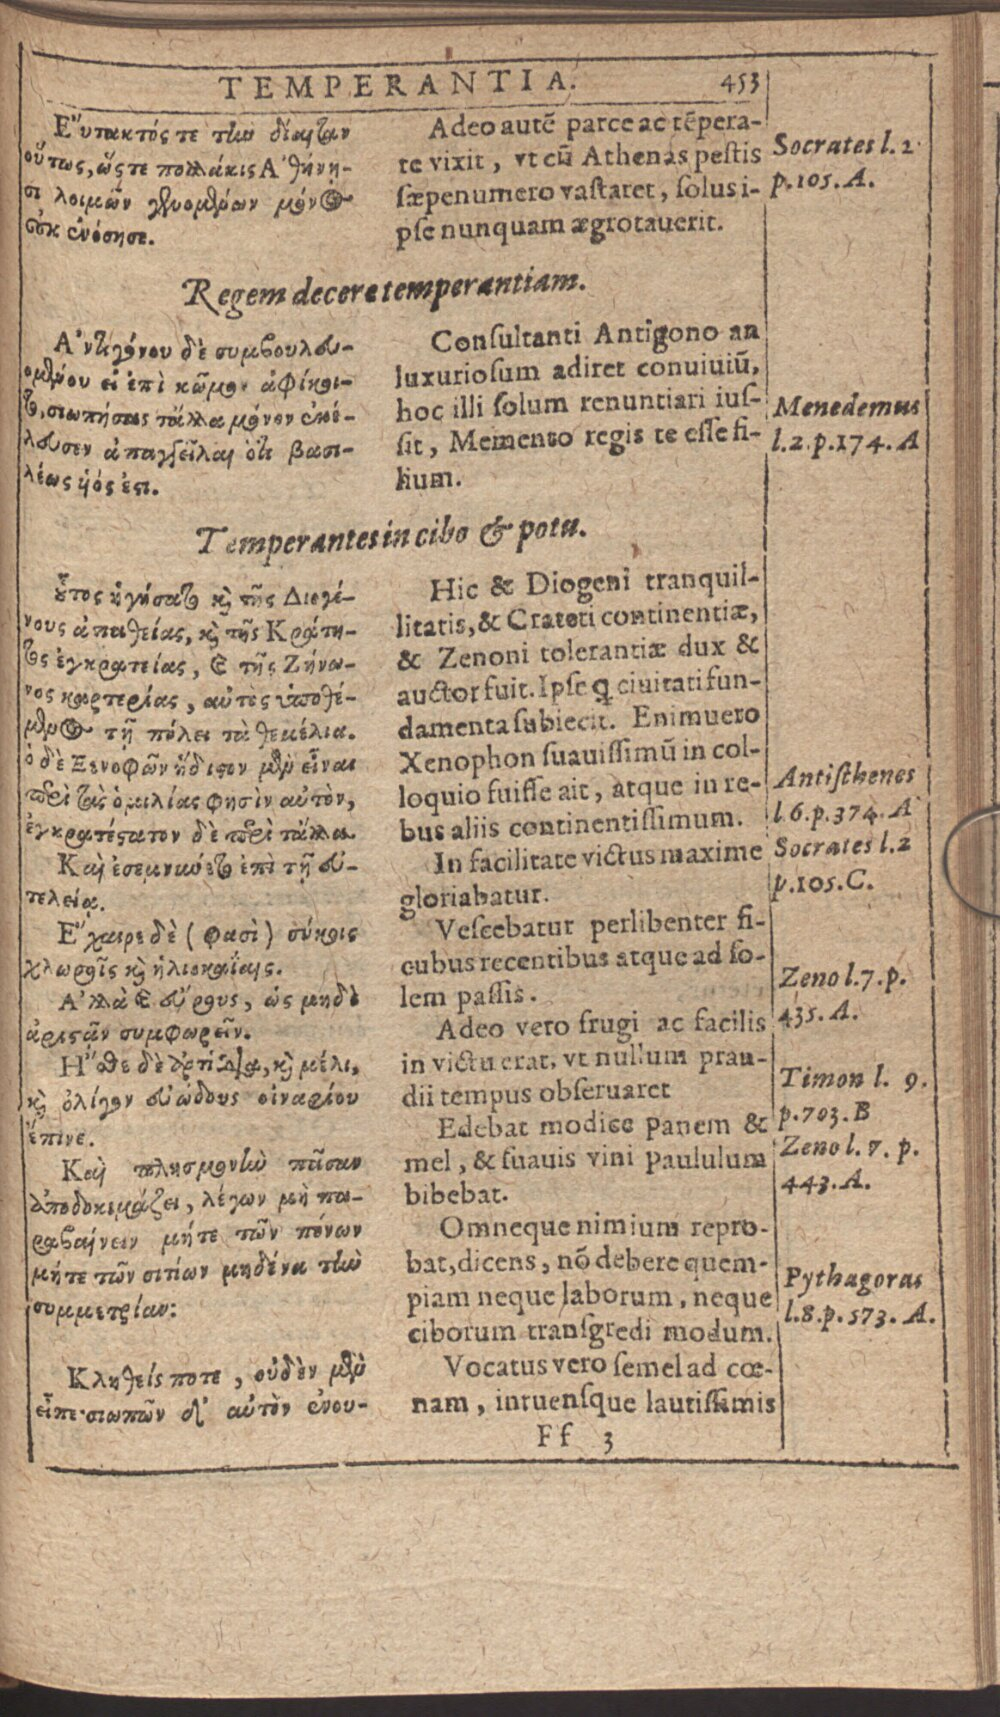 TEMPERANTIA. 453
Εὔτακτός τε τὴν δίαιταν
οὕτως, ὥς τε πολλάκις Ἀθήνη-
σι λοιμῶν γενομένων μόνος
οὐκ ἐνόσησε.
Adeo autē parce ac tēpera-
te vixit, vt cū Athenas pestis
sæpenumero vastaret, solus i-
pse nunquam ægrotauerit.
Socrates l.2
p.105.A.
Regem decere temperantiam.
Ἀντιγόνου δὲ συμβουλευ-
ομένου εἰ ἐπὶ κῶμον ἀφίκοι-
το, σιωπήσας τἄλλα μόνον ἐκέ-
λευσεν ἀπαγγεῖλαι ὅτι βασι-
λέως ὑός ἐστι.
Consultanti Antigono an
luxuriosum adiret conuiuiū,
hoc illi solum renuntiari ius-
sit, Memento regis te esse fi-
lium.
Menedemus
l.2.p.174.A
Temperantes in cibo & potu.
οὗτος ἡγήσατο καὶ τῆς Διογέ-
νους ἀπαθείας, καὶ τῆς Κράτη-
τος ἐγκρατείας, καὶ τῆς Ζήνω-
νος καρτερίας, αὐτὸς ὑποθέ-
μενος τῇ πόλει τὰ θεμέλια.
ὁ δὲ Ξενοφῶν ἥδιστον μὲν εἶναι
περὶ τὰς ὁμιλίας φησὶν αὐτὸν,
ἐγκρατέστατον δὲ περὶ τἄλλα.
Καὶ ἐσεμνύνετο ἐπὶ τῇ εὐ-
τελείᾳ.
Ἔχαιρε δὲ (φασὶ) σύκοις
χλωροῖς καὶ ἡλιοκαΐαις.
Ἀλλὰ καὶ εὔρους, ὡς μηδὲ
ἀριστᾶν συμφωρεῖν.
Ἤσθιε δὲ ἀρτίδια, καὶ μέλι,
καὶ ὀλίγον εὐώδους οἰναρίου
ἔπινε.
Καὶ πλησμονὴν πᾶσαν
ἀποδοκιμάζει, λέγων μὴ πα-
ραβαίνειν μήτε τῶν πόνων
μήτε τῶν σιτίων μηδένα τὴν
συμμετρίαν:
Κληθείς ποτε, οὐδὲν μὲν
εἶπε· σιωπῶν δι' αὐτὸν ἐνου-
Hic & Diogeni tranquil-
litatis, & Crateti continentiæ,
& Zenoni tolerantiæ dux &
auctor fuit. Ipse q; ciuitati fun-
damenta subiecit. Enimuero
Xenophon suauissimū in col-
loquio fuisse ait, atque in re-
bus aliis continentissimum.
In facilitate victus maxime
gloriabatur.
Vescebatur perlibenter fi-
cubus recentibus atque ad so-
lem passis.
Adeo vero frugi ac facilis
in victu erat, vt nullum pran-
dii tempus obseruaret
Edebat modice panem &
mel, & suauis vini paululum
bibebat.
Omneque nimium repro-
bat, dicens, nō debere quem-
piam neque laborum, neque
ciborum transgredi modum.
Vocatus vero semel ad cœ-
nam, intuensque lautissimis
Antisthenes
l.6.p.374.A
Socrates l.2
p.105.C.
Zeno l.7.p.
435.A.
Timon l. 9.
p.703.B
Zeno l.7.p.
443.A.
Pythagoras
l.8.p.573.A.
Ff 3